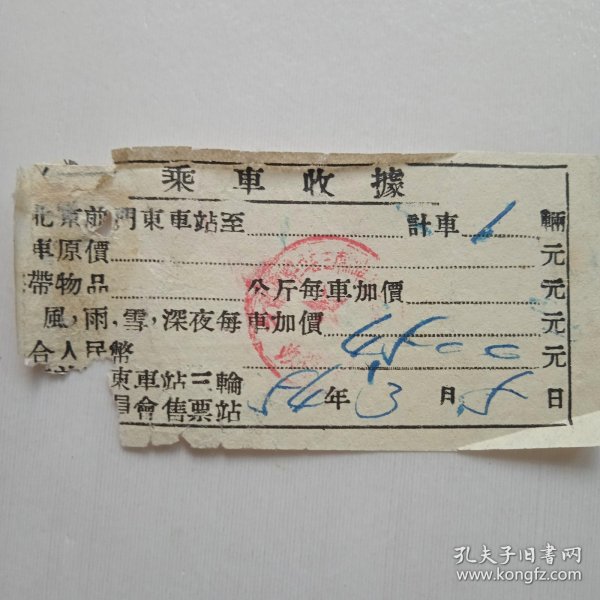 乘車收據
北京前門東車站至 計車 1 輛
車原價 元
帶物品 公斤每車加價 元
風，雨，雪，深夜每車加價 元
合人民幣 4500 元
東車站三輪
員會售票站 54年3月5日
孔夫子旧书网
www.kongfz.com